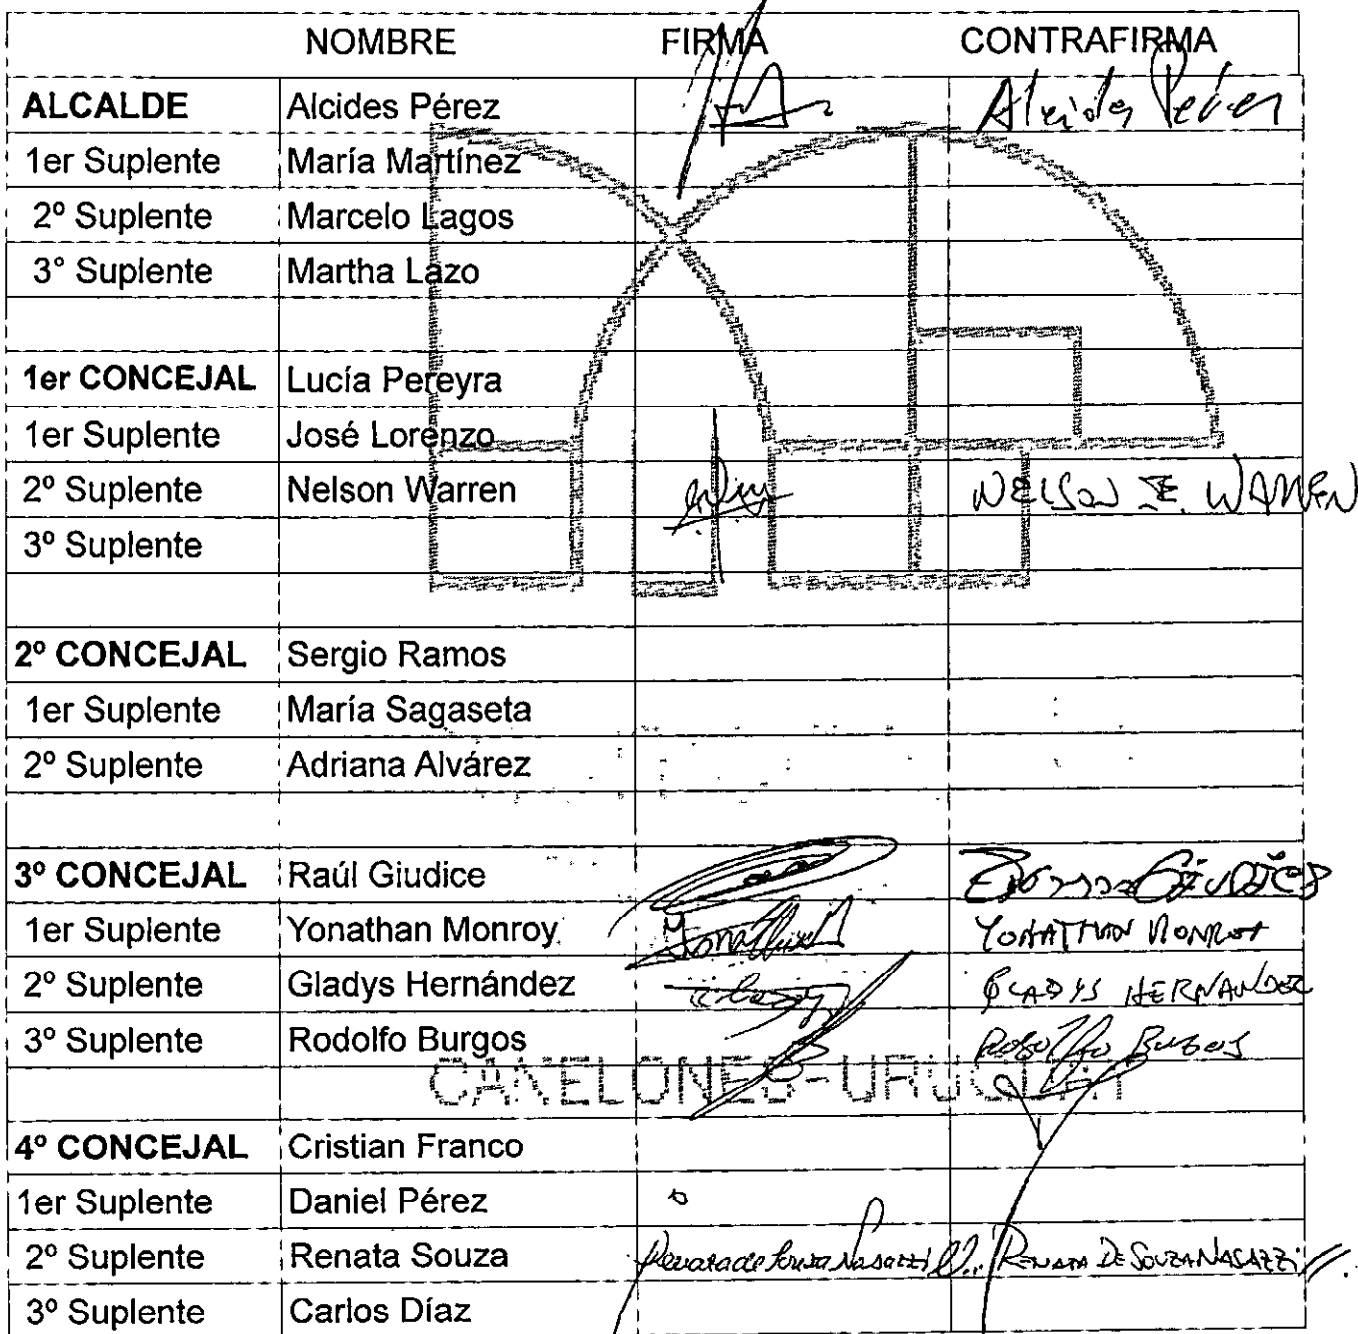 NOMBRE FIRMA CONTRAFIRMA
ALCALDE Alcides Pérez Alcides Pérez
1er Suplente María Martínez
2º Suplente Marcelo Lagos
3° Suplente Martha Lazo
1er CONCEJAL Lucía Pereyra
1er Suplente José Lorenzo
2º Suplente Nelson Warren NELSON E. WARREN
3º Suplente
2º CONCEJAL Sergio Ramos
1er Suplente María Sagaseta
2º Suplente Adriana Alvárez
3º CONCEJAL Raúl Giudice GIUDICE
1er Suplente Yonathan Monroy YONATHAN MONROY
2º Suplente Gladys Hernández GLADYS HERNANDEZ
3º Suplente Rodolfo Burgos Rodolfo Burgos
CANELONES-URUGUAY
4º CONCEJAL Cristian Franco
1er Suplente Daniel Pérez
2º Suplente Renata Souza Renata de Souza Nasazzi RENATA DE SOUZA NASAZZI
3º Suplente Carlos Díaz